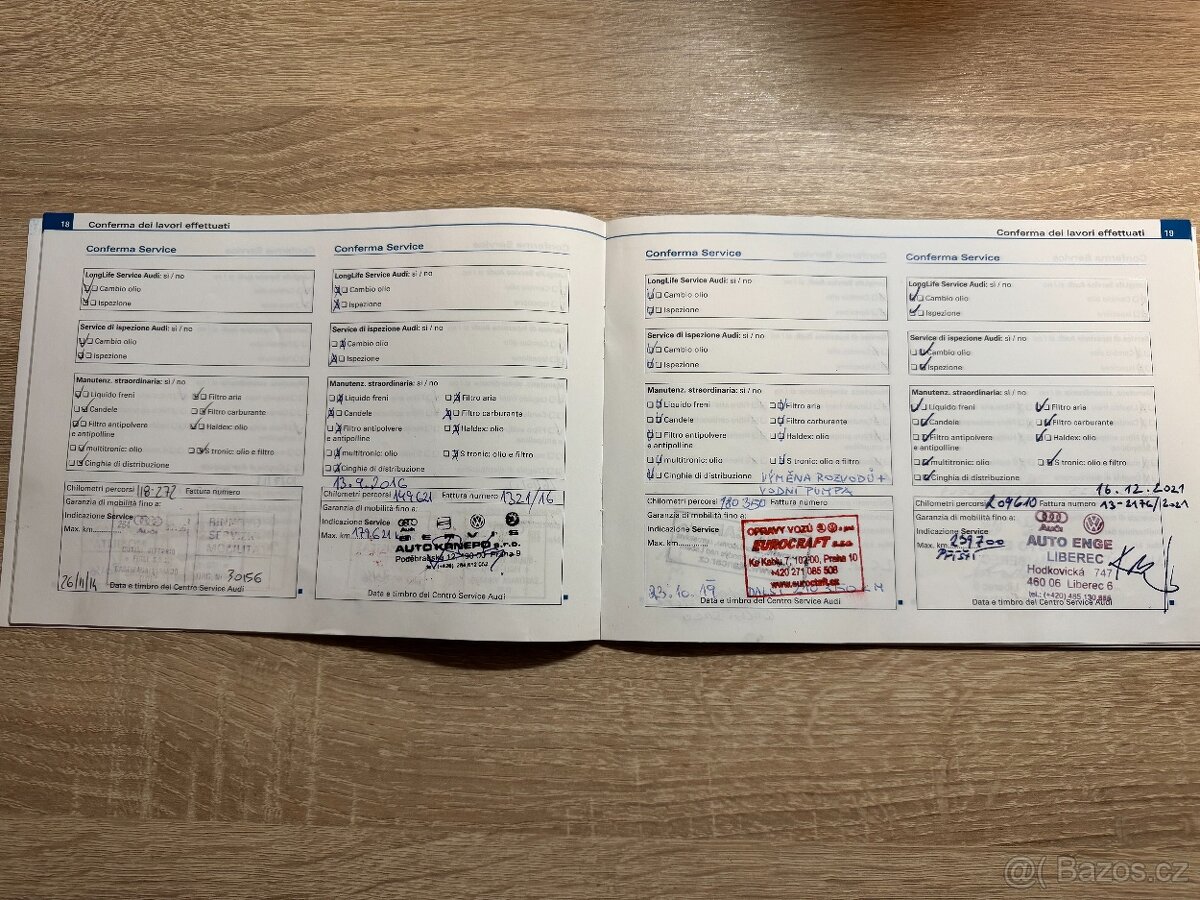 18 Conferma dei lavori effettuati
Conferma Service
LongLife Service Audi: sì / no
Cambio olio
Ispezione
Service di ispezione Audi: sì / no
Cambio olio
Ispezione
Manutenz. straordinaria: sì / no
Liquido freni Filtro aria
Candele Filtro carburante
Filtro antipolvere Haldex: olio
e antipolline
multitronic: olio S tronic: olio e filtro
Cinghie di distribuzione
Chilometri percorsi 118-272 Fattura numero
Garanzia di mobilità fino a:
Indicazione Service
Max. km
30156
26/11/14
Data e timbro del Centro Service Audi
Conferma Service
LongLife Service Audi: sì / no
Cambio olio
Ispezione
Service di ispezione Audi: sì / no
Cambio olio
Ispezione
Manutenz. straordinaria: sì / no
Liquido freni Filtro aria
Candele Filtro carburante
Filtro antipolvere Haldex: olio
e antipolline
multitronic: olio S tronic: olio e filtro
Cinghie di distribuzione
13.9.2016
Chilometri percorsi 149621 Fattura numero 1321/16
Garanzia di mobilità fino a:
Indicazione Service
Max. km 179621
AUTO KANEPO s.r.o.
Praha 9
Data e timbro del Centro Service Audi
Conferma dei lavori effettuati 19
Conferma Service
LongLife Service Audi: sì / no
Cambio olio
Ispezione
Service di ispezione Audi: sì / no
Cambio olio
Ispezione
Manutenz. straordinaria: sì / no
Liquido freni Filtro aria
Candele Filtro carburante
Filtro antipolvere Haldex: olio
e antipolline
multitronic: olio S tronic: olio e filtro
Cinghie di distribuzione VÝMĚNA ROZVODŮ +
VODNÍ PUMPA
Chilometri percorsi 180 350 Fattura numero
Garanzia di mobilità fino a:
Indicazione Service
Max. km
OPRAVY VOZŮ
EUROCRAFT s.r.o.
Ke Kablu 7, 102 00, Praha 10
+420 271 085 508
www.eurocraft.cz
23.10.19 DALŠÍ 210 350 KM
Data e timbro del Centro Service Audi
Conferma Service
LongLife Service Audi: sì / no
Cambio olio
Ispezione
Service di ispezione Audi: sì / no
Cambio olio
Ispezione
Manutenz. straordinaria: sì / no
Liquido freni Filtro aria
Candele Filtro carburante
Filtro antipolvere Haldex: olio
e antipolline
multitronic: olio S tronic: olio e filtro
Cinghie di distribuzione
16.12.2021
Chilometri percorsi 209610 Fattura numero 13-2176/2021
Garanzia di mobilità fino a:
Indicazione Service
Max. km 239700
PŘÍŠTÍ
Audi
AUTO ENGE
LIBEREC
Hodkovická 747
460 06 Liberec 6
Data e timbro del Centro Service Audi
Bazoš.cz